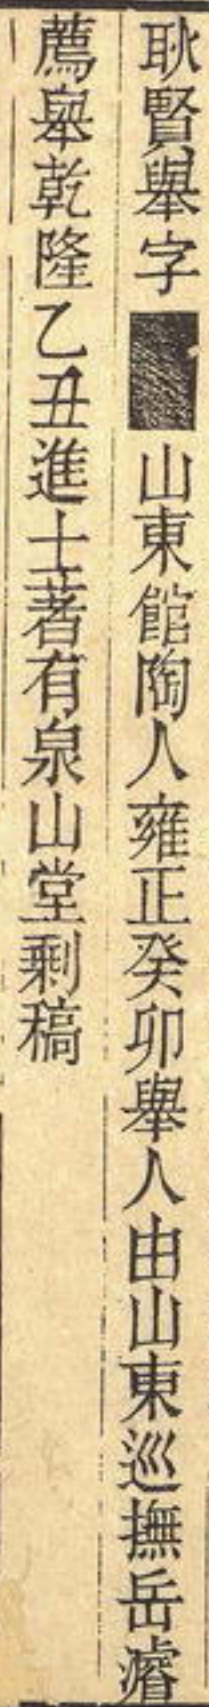 耿賢舉字■山東館陶人雍正癸卯舉人由山東巡撫岳濬
薦舉乾隆乙丑進士著有泉山堂剩稿